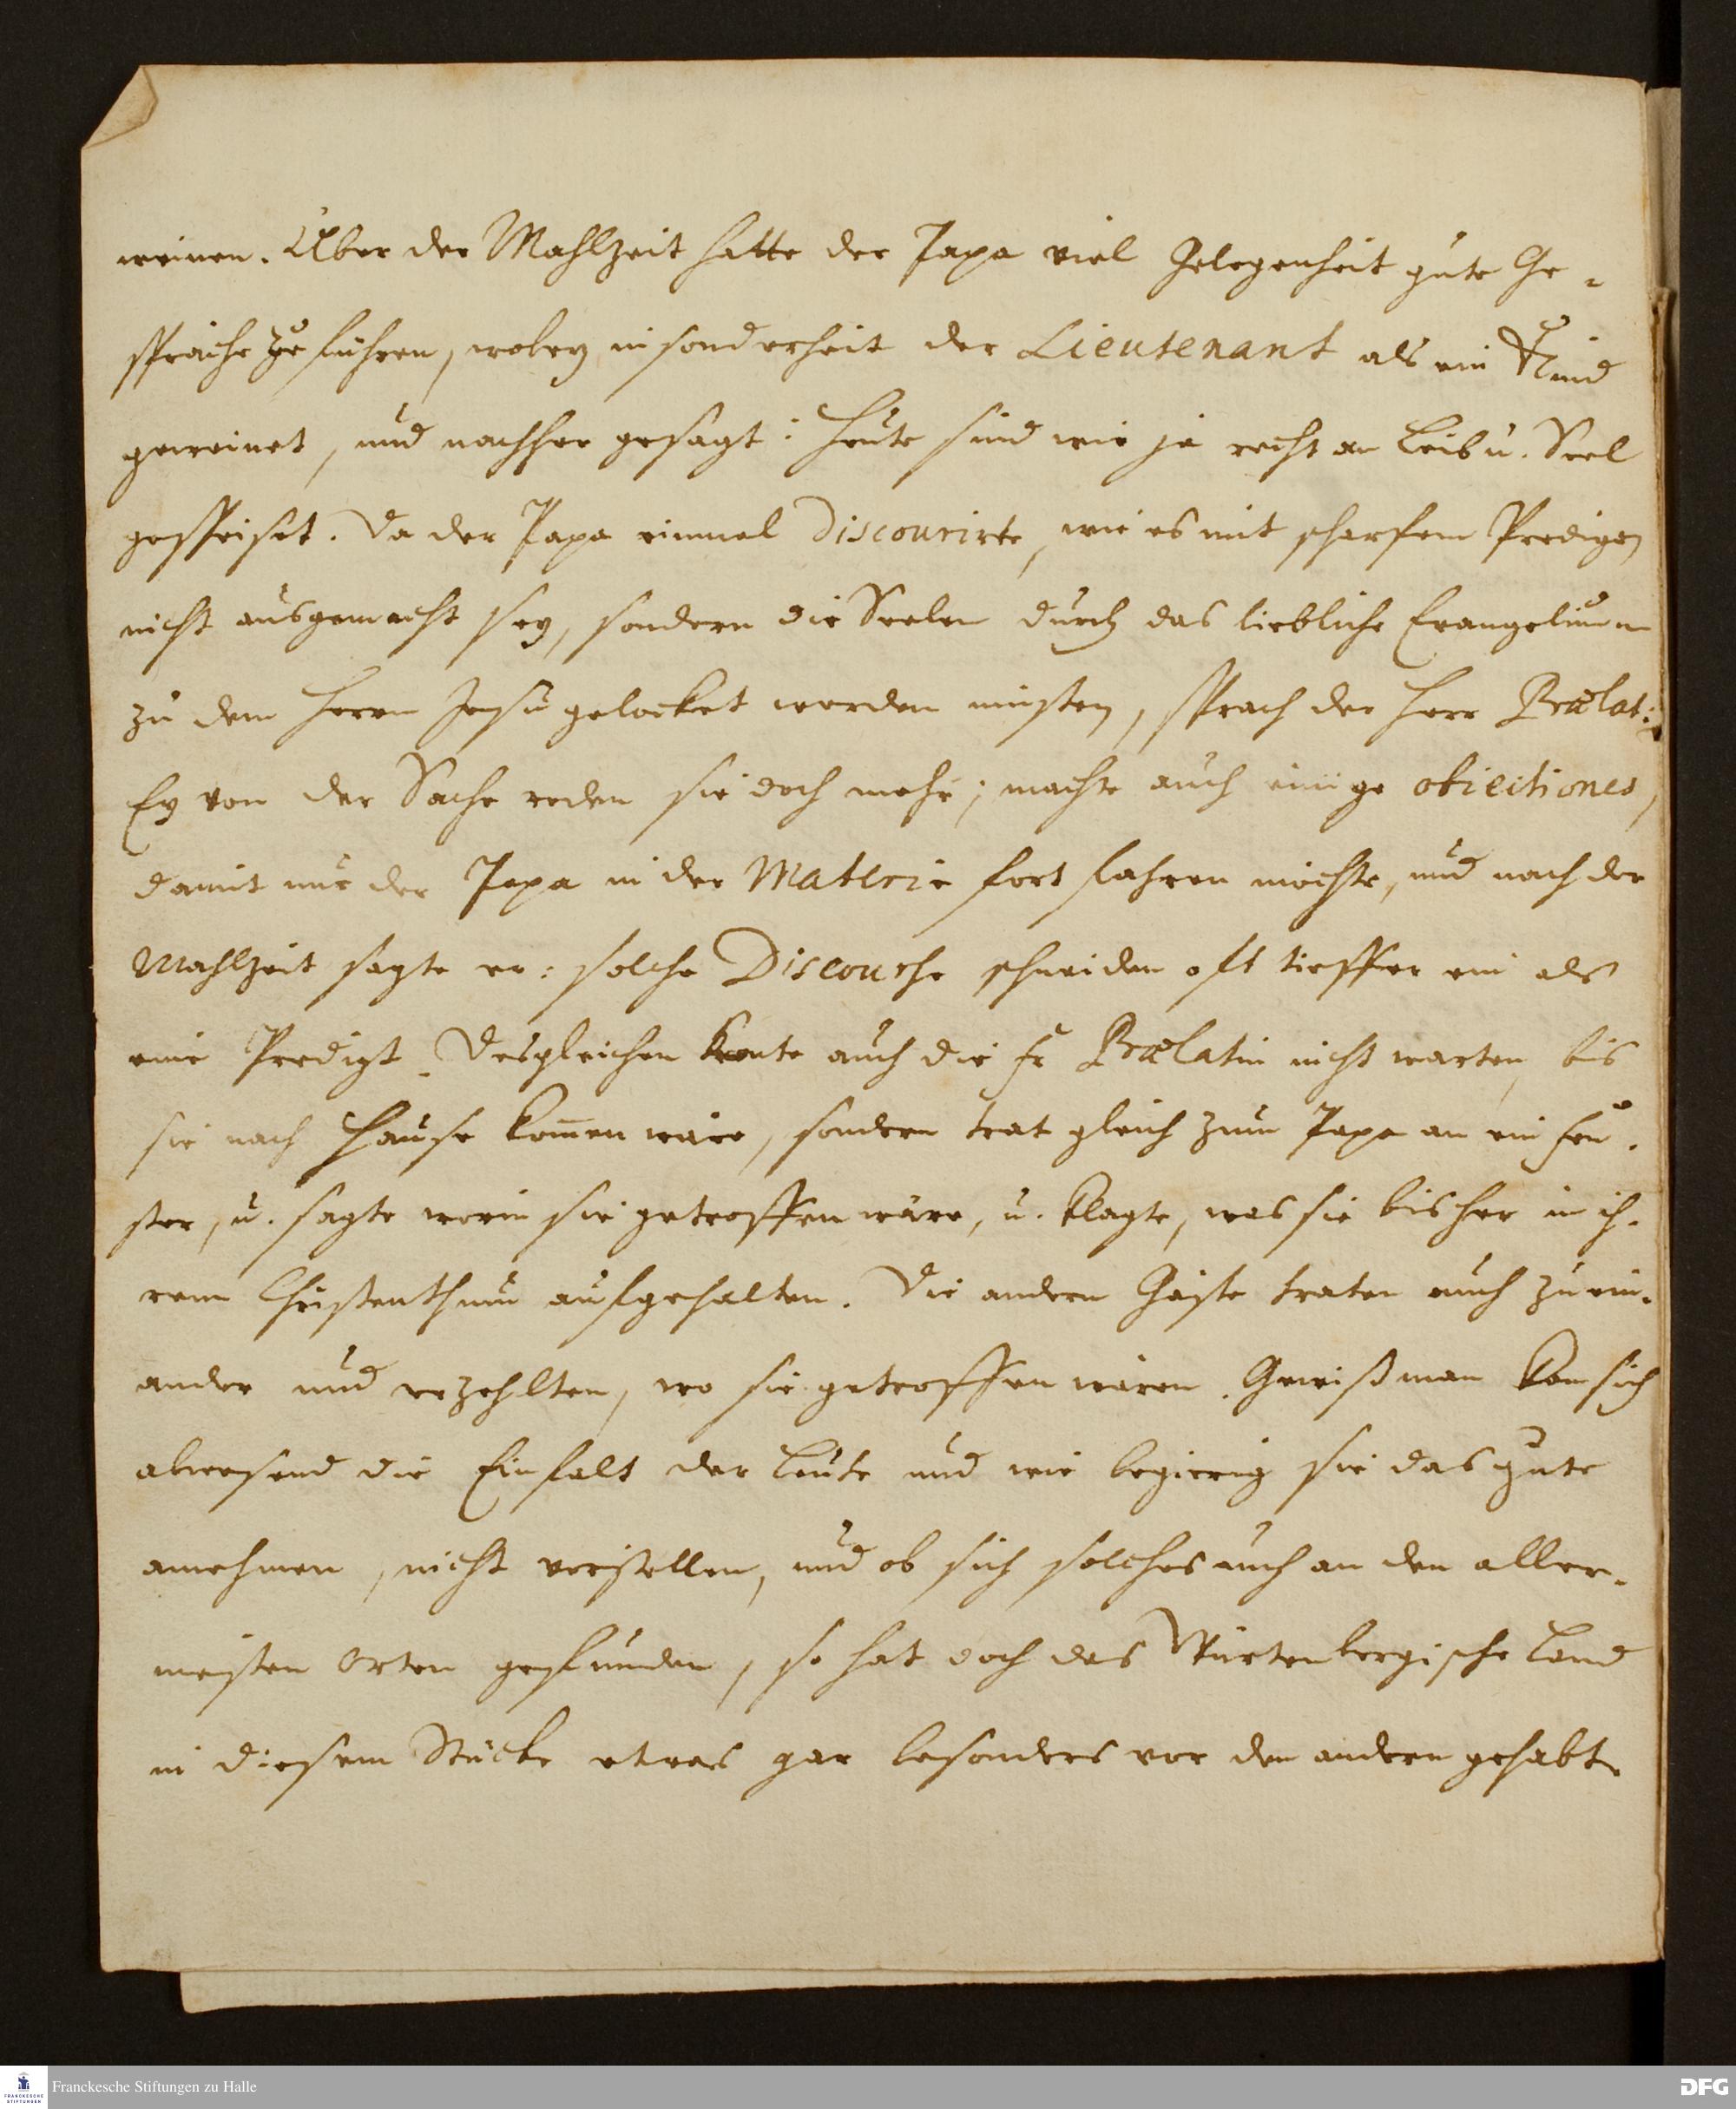 weinen. Über der Mahlzeit hatte der Papa viel Gelegenheit gute Ge-
spräche zu führen, wobey insonderheit der Lieutenant als ein Kind
geweinet, und nachher gesagt: Heute sind wir ja recht an Leib u. Seel
gespeiset. Da der Papa einmal discourirte, wie es mit scharfem Predigen
nicht ausgemacht sey, sondern die Seelen durch das liebliche Evangelium
zu dem Herrn Jesu gelocket werden müsten, sprach der Herr Prælat:
Ey von der Sache reden sie doch mehr; machte auch einige objectiones,
damit nur der Papa in der Materie fort fahren möchte, und nach der
Mahlzeit sagte er: solche Discourse schneiden oft tieffer ein als
eine Predigt. Desgleichen konte auch die Fr Prælatin nicht warten, bis
sie nach Hause kom̄en wäre, sondern trat gleich zum Papa an ein Fen-
ster, u. sagte worin sie getroffen wäre, u. klagte, was sie bisher in ih-
rem Christenthum aufgehalten. Die andern Gäste traten auch zu ein-
ander und erzehlten, wo sie getroffen wären. Gewiß man kan sich
abwesend die Einfalt der Leute und wie begierig sie das gute
annehmen, nicht vorstellen, und ob sich solches auch an den aller-
meisten Orten gefunden, so hat doch das Würtenbergische Land
in diesem Stücke etwas gar besonders vor den andern gehabt.
Franckesche Stiftungen zu Halle
FRANCKESCHE
STIFTUNGEN
DFG